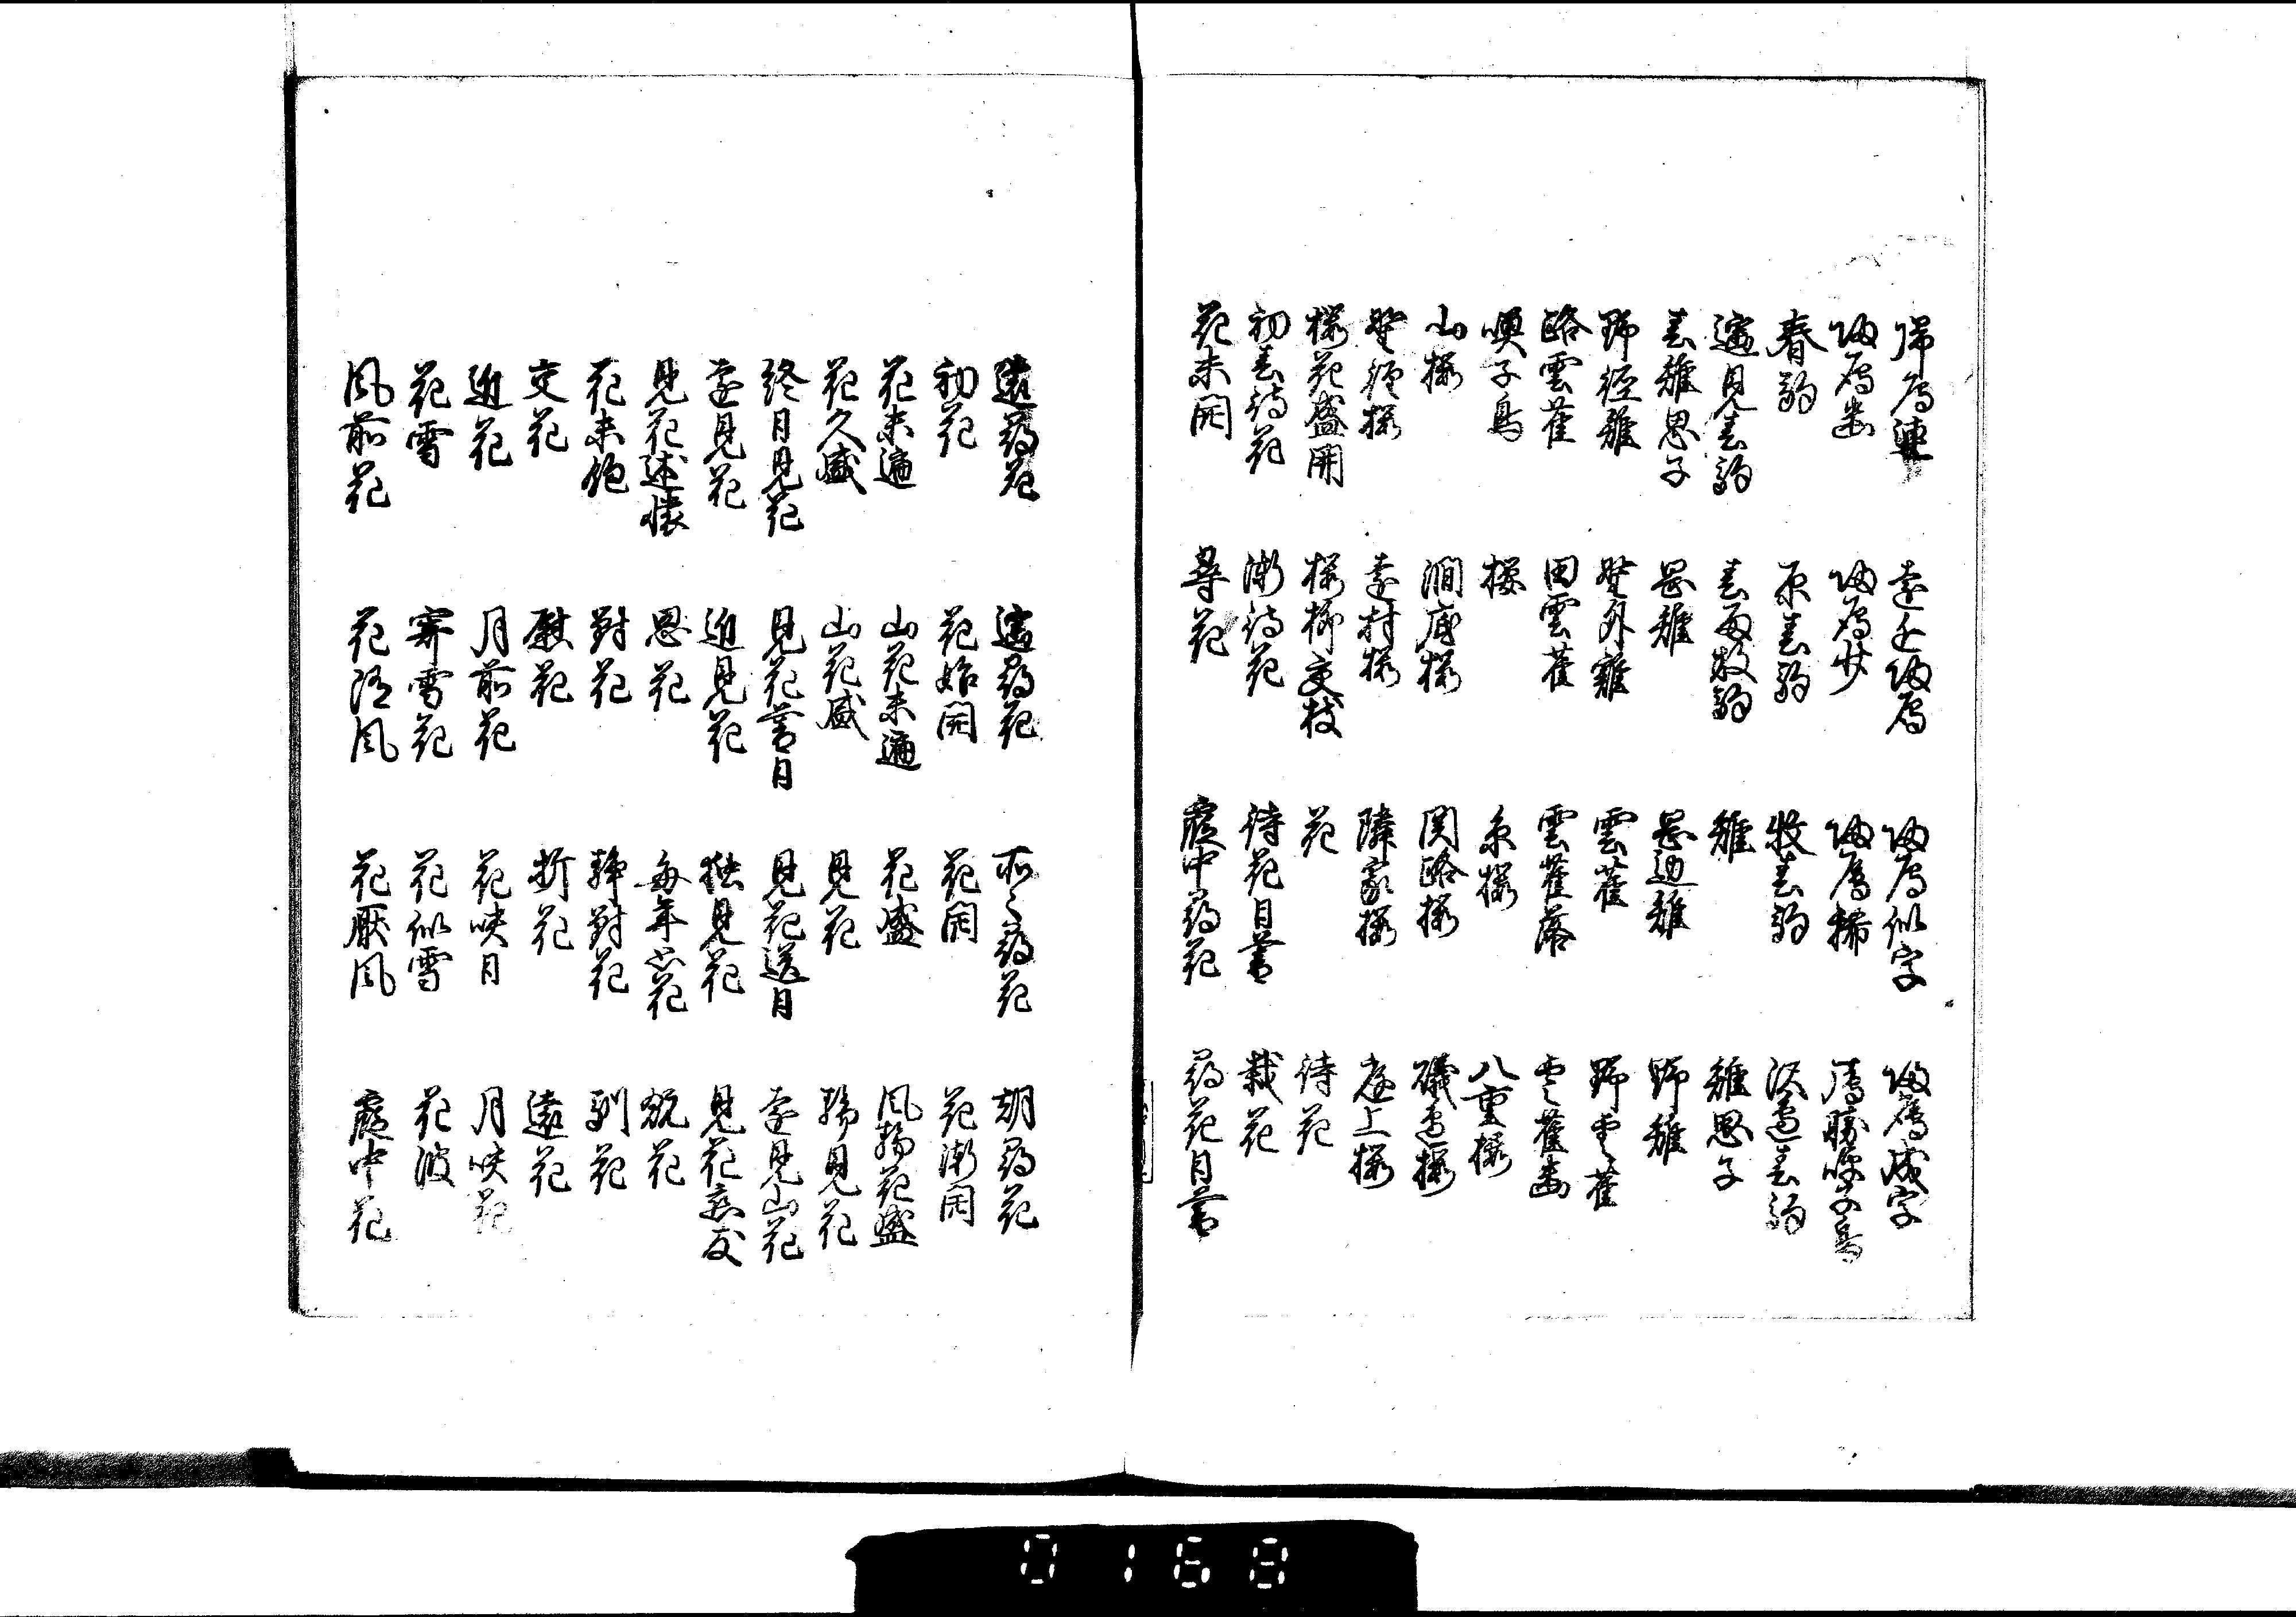 帰鳫連 遠近帰鳫 帰鳫似字 帰鳫成字
帰鳫幽 帰鳫少 帰鳫稀
春駒 原春駒 牧春駒 沢辺春駒
遠見春駒 春雨牧駒 雉 雉思子
春雉思子 暮雉 暮辺雉 野雉
野径雉 野外雉 雲雀 野雲雀
路雲雀 田雲雀 雲雀落 雲雀幽
喚子鳥 桜 糸桜 八重桜
山桜 澗底桜 関路桜 磯辺桜
野径桜 遠村桜 隣家桜 庭上桜
桜花盛開 桜柳交枝 花 待花
初春待花 漸待花 待花日暮 栽花
花未開 尋花 霞中尋花 尋花日暮
遠尋花 遠尋花 所々尋花 朝尋花
初花 花始開 花開 花漸開
花未遍 山花未遍 花盛 風静花盛
花久盛 山花盛 見花 静見花
終日見花 見花暮日 見花送日 遠見山花
遠見花 近見花 独見花 見花忘友
見花述懐 思花 毎年思花 翫花
花未飽 対花 静対花 馴花
交花 慰花 折花 遠花
近花 月前花 花映月 月映花
花雪 寄雪花 花似雪 花波
風前花 花随風 花厭風 霞中花
0168